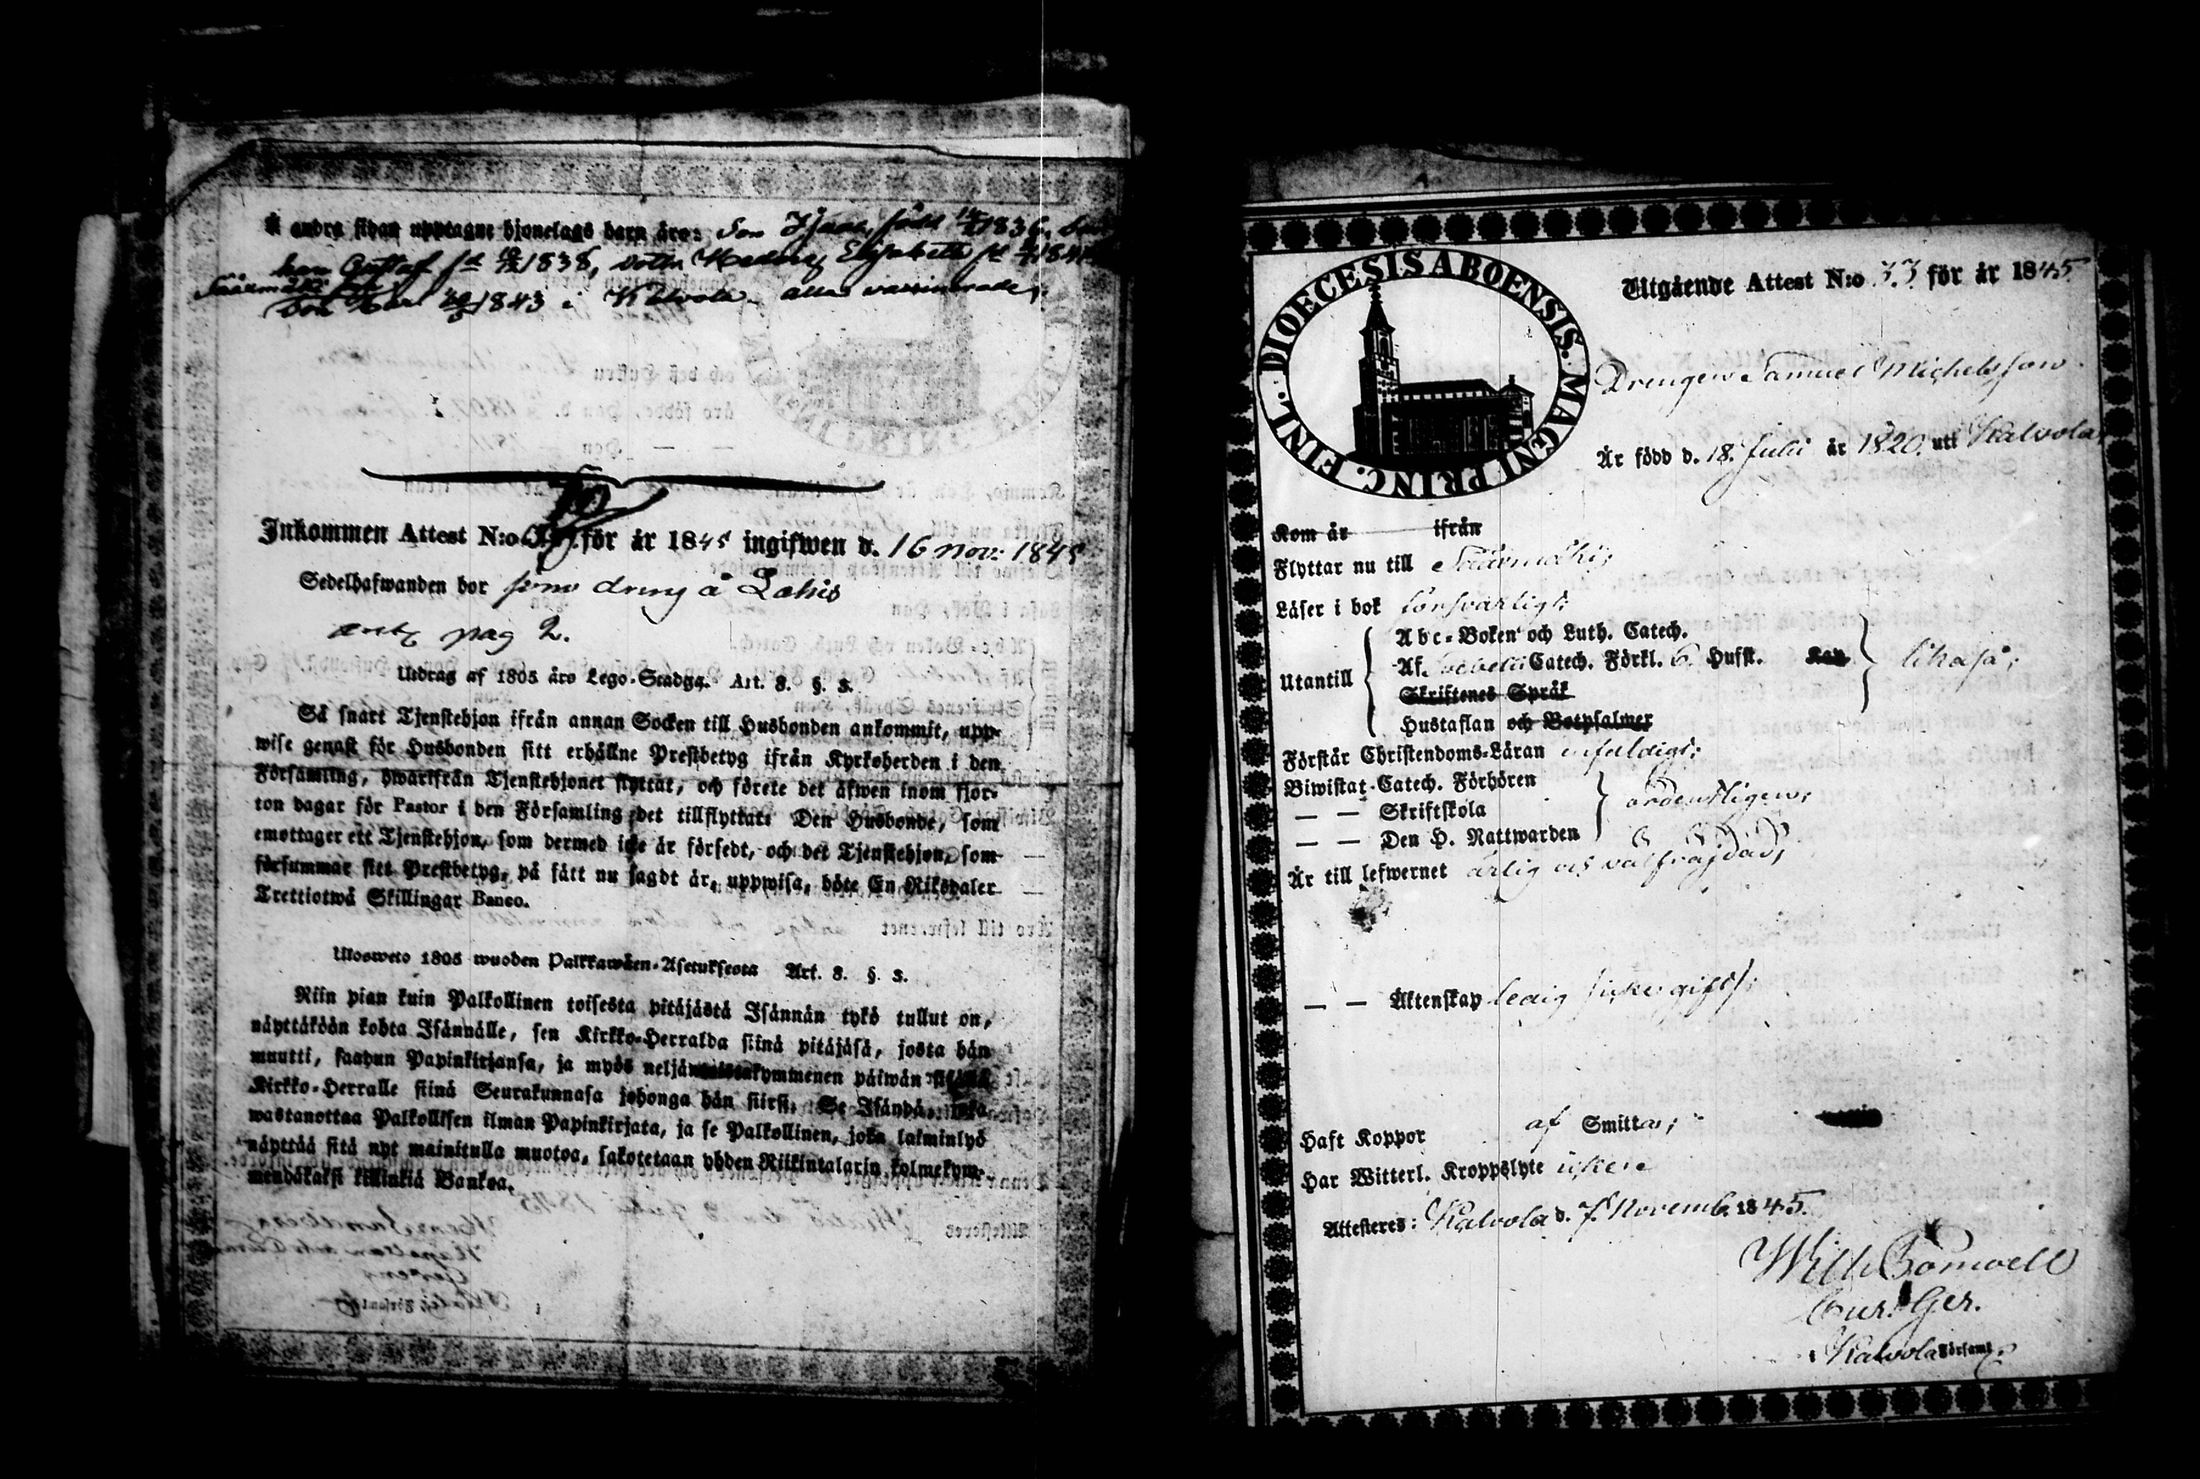 å andra sidan upptagne hjonelags barn äro: Son född 1836,
Gustaf fd 1838, dottr Hedvig Elisabeth
Saarmäkis
son 1843 i Kalvola allas vaccinerade
Inkommen Attest N:o för år 1845 ingifwen d. 16 nov. 1845
Sedelhafwanden bor som dreng å Lahis
pag 2.
Utdrag af 1805 års Lego-Stadga. Art. 8. §. 3.
Så snart Tjenstehjon ifrån annan Socken till Husbonden ankommit, upp-
wise genast för Husbonden sitt erhållne Prestbetyg ifrån Kyrkoherden i den
Församling, hwarifrån Tjenstehjonet flyttat, och förete det äfwen inom fjor-
ton dagar för Pastor i den Församling det tillflyttat: Den Husbonde, som
emottager ett Tjenstehjon, som dermed icke är försedt, och det Tjenstehjon, som
försummar sitt Prestbetyg, på sätt nu sagdt är, uppwisa, böte En Riksdaler
Trettiotwå Skillingar Banco.
Ulosweto 1805 wuoden Palkkawäen-Asetuksesta Art. 8. §. 3.
Niin pian kuin Palkollinen toisesta pitäjästä Isännän tykö tullut on,
näyttäköön kohta Isännälle, sen Kirkko-Herralda siinä pitäjäsä, josta hän
muutti, saahun Papinkirjansa, ja myös neljäntoistakymmenen päiwän sisällä
Kirkko-Herralle siinä Seurakunnasa johonga hän siirsi. Se Isändä, joka
wastanottaa Palkollisen ilman Papinkirjata, ja se Palkollinen, joka laiminlyö
näyttää sitä nyt mainitulla muotoa, sakotetaan yhden Riikintalarin kolmekym-
mendäkaksi killinkiä Bankoa.
DIOECESIS ABOENSIS. MAGNI PRINC. FINL.
Utgående Attest N:o 33 för år 1845
Drengen Samuel Michelsson
Är född d. 18 Julii år 1820. uti Kalvola
Kom år ifrån
Flyttar nu till Saarmäkis
Läser i bok försvarligt;
Utantill
Abc-Boken och Luth. Catech.
Af. Svebelii Catech. Förkl. 6 Hufst. Kap likaså;
Skriftenes Språk
Hustaflan och Botpsalmer
Förstår Christendoms-Läran enfaldigt;
Biwistat Catech. Förhören
— — Skriftskola ordentligen;
— — Den H. Nattwarden
Är till lefwernet ärlig och välfräjdad;
— — Äktenskap ledig
Haft Koppor af Smittan;
Har Witterl. Kroppslyte icke
Attesteras: Kalvola d. 7. Novemb. 1845.
Wilh.
Kalvola Församl.